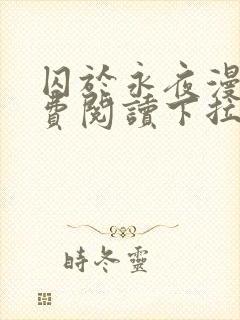 囚於永夜漫
費閱讀下拉
時冬靈